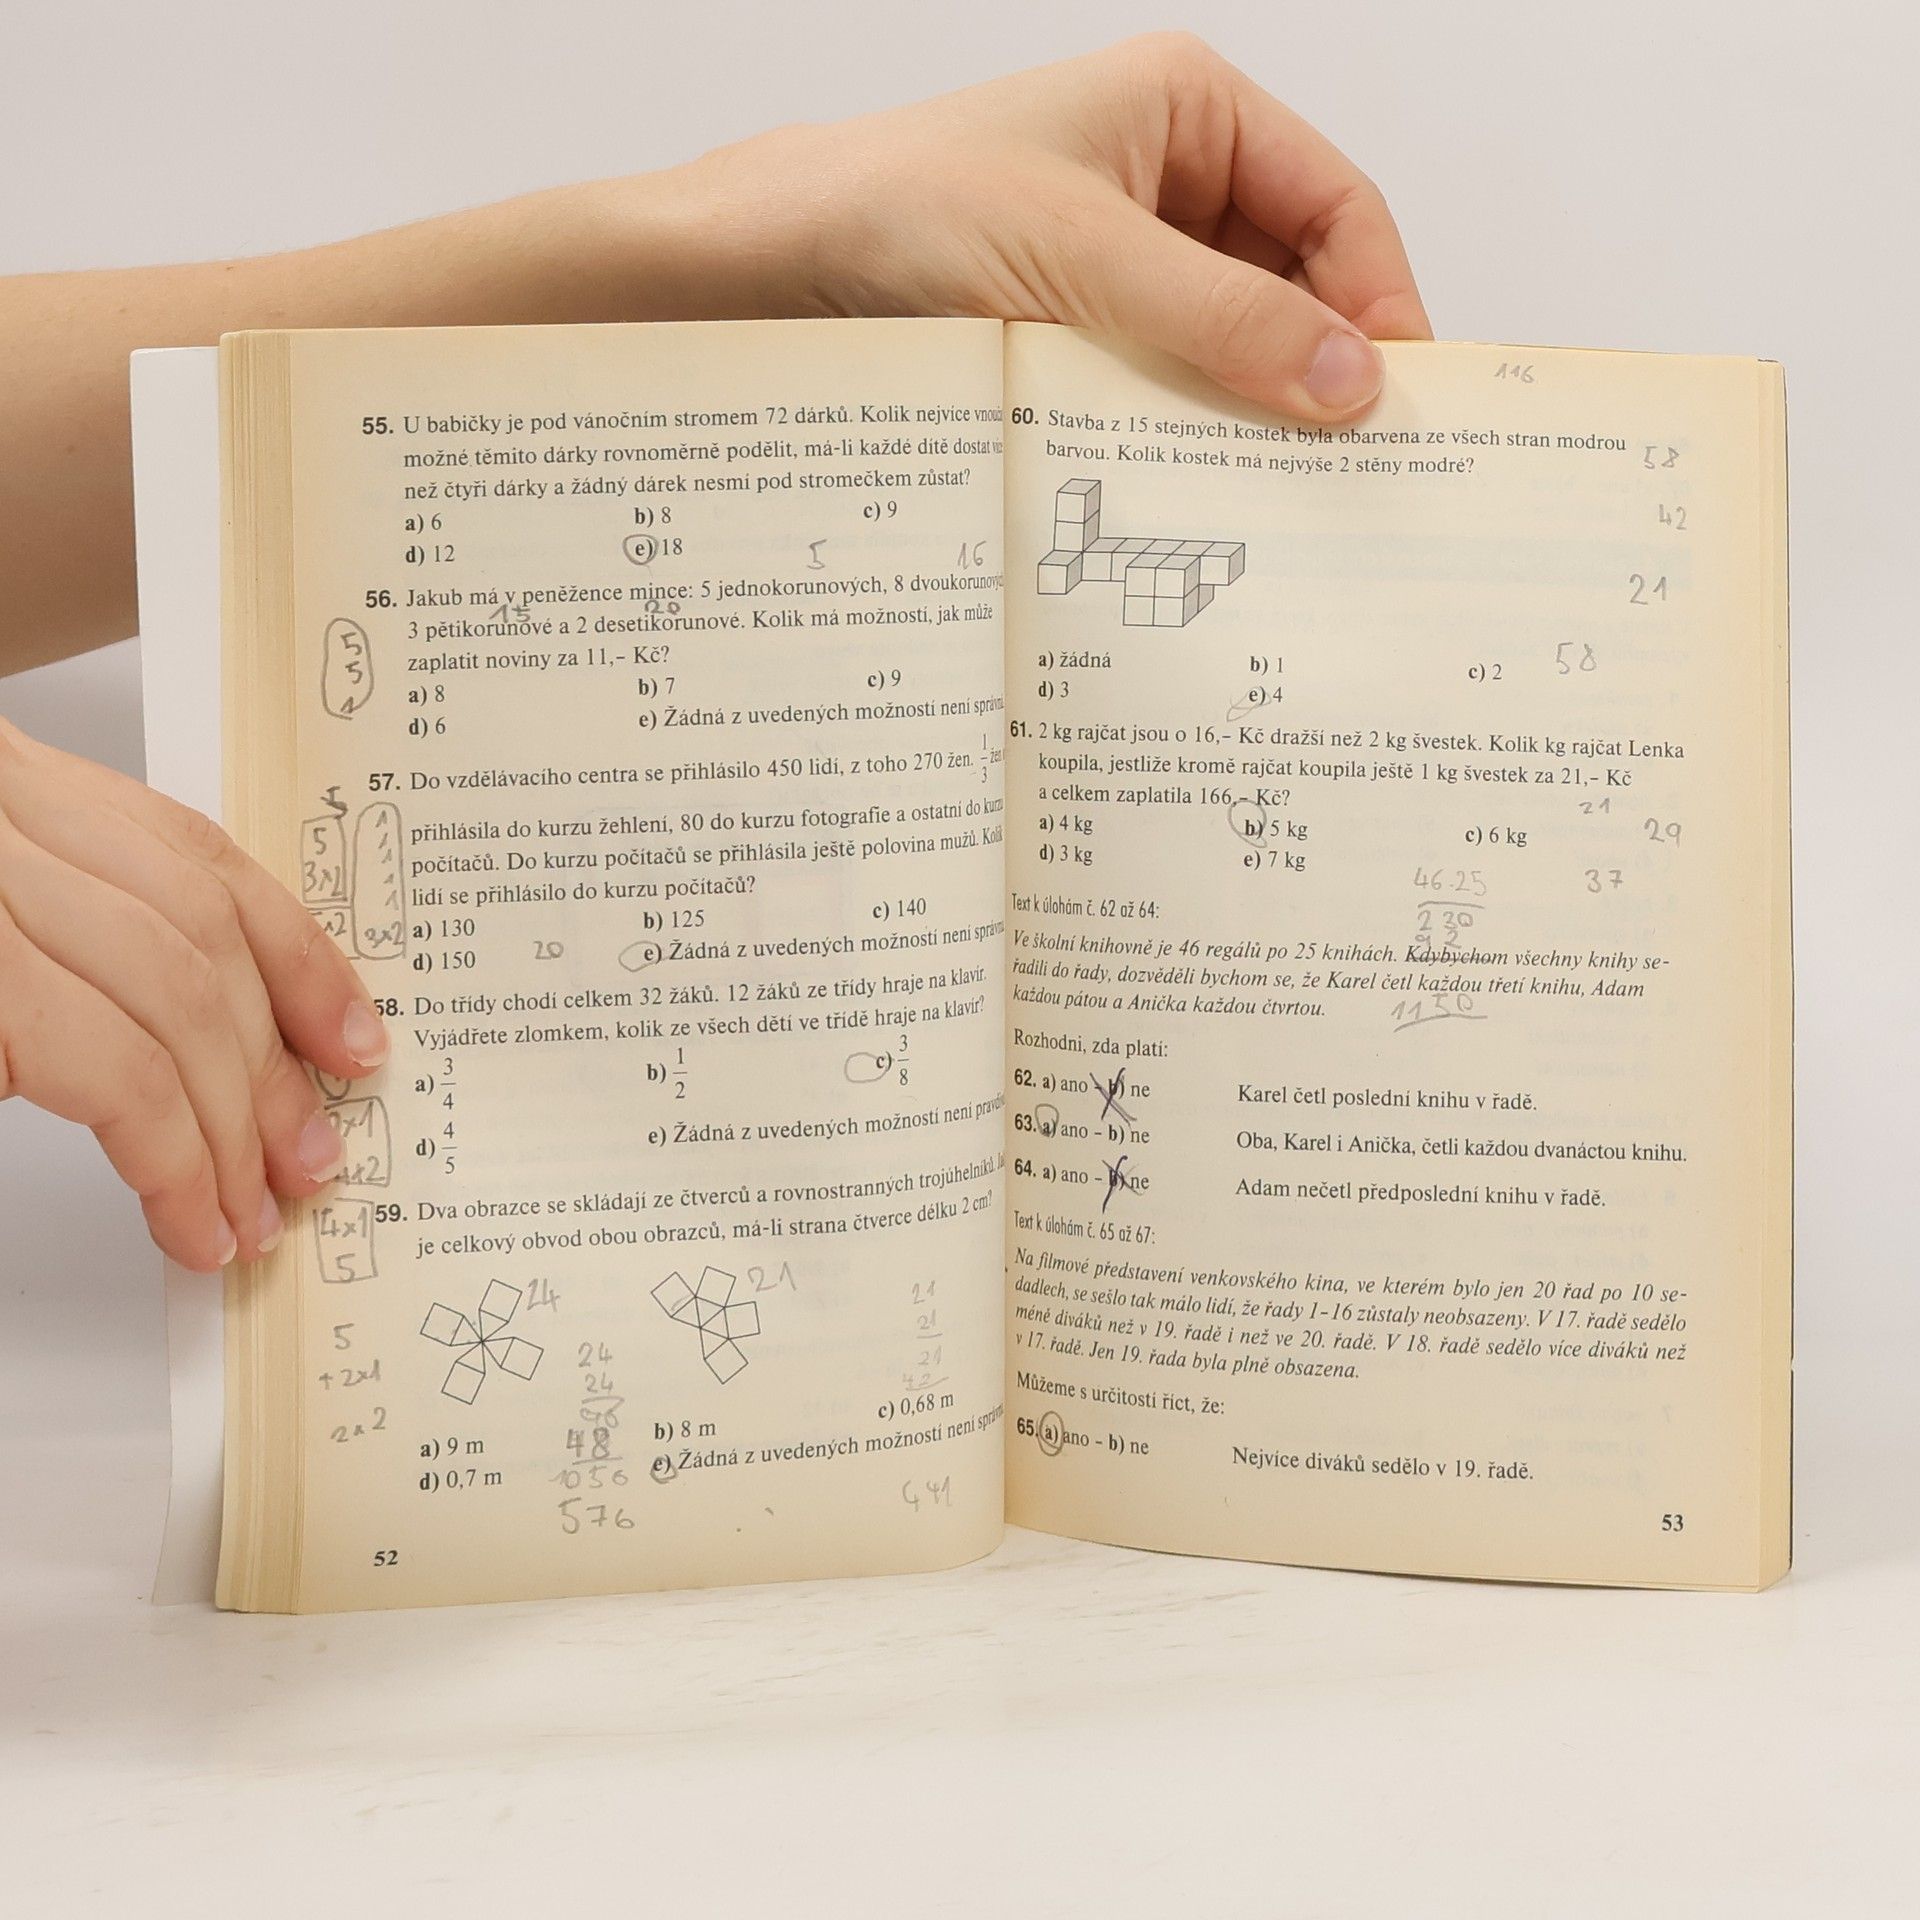 55. U babičky je pod vánočním stromem 72 dárků. Kolik nejvíce
možné těmito dárky rovnoměrně podělit, má-li každé dítě dostat
než čtyři dárky a žádný dárek nesmí pod stromečkem zůstat?
a) 6 b) 8 c) 9
d) 12 e) 18
5 16
56. Jakub má v peněžence mince: 5 jednokorunových, 8 dvoukorunových
15 20
3 pětikorunové a 2 desetikorunové. Kolik má možností, jak může
zaplatit noviny za 11,– Kč?
a) 8 b) 7 c) 9
d) 6 e) Žádná z uvedených možností není
5
5
1
57. Do vzdělávacího centra se přihlásilo 450 lidí, z toho 270 žen. 1/3 žen
přihlásila do kurzu žehlení, 80 do kurzu fotografie a ostatní do kurzu
počítačů. Do kurzu počítačů se přihlásila ještě polovina mužů. Kolik
lidí se přihlásilo do kurzu počítačů?
a) 130 b) 125 c) 140
d) 150 20 e) Žádná z uvedených možností není
5
5
3x2
1
1
1
1
1
3x2
58. Do třídy chodí celkem 32 žáků. 12 žáků ze třídy hraje na klavír.
Vyjádřete zlomkem, kolik ze všech dětí ve třídě hraje na klavír?
a) 3/4 b) 1/2 c) 3/8
d) 4/5 e) Žádná z uvedených možností není
59. Dva obrazce se skládají ze čtverců a rovnostranných trojúhelníků.
je celkový obvod obou obrazců, má-li strana čtverce délku 2 cm?
4x1
5
24 21
5
+ 2x1
2x2
24
24
48
1050
576
21
21
21
42
441
a) 9 m b) 8 m c) 0,68 m
d) 0,7 m e) Žádná z uvedených možností není
52
116
60. Stavba z 15 stejných kostek byla obarvena ze všech stran modrou
barvou. Kolik kostek má nejvýše 2 stěny modré?
58
42
21
58
a) žádná b) 1 c) 2
d) 3 e) 4
61. 2 kg rajčat jsou o 16,– Kč dražší než 2 kg švestek. Kolik kg rajčat Lenka
koupila, jestliže kromě rajčat koupila ještě 1 kg švestek za 21,– Kč
a celkem zaplatila 166,– Kč?
a) 4 kg b) 5 kg c) 6 kg
d) 3 kg e) 7 kg
21
29
37
46.25
230
92
1150
Text k úlohám č. 62 až 64:
Ve školní knihovně je 46 regálů po 25 knihách. Kdybychom všechny knihy se-
řadili do řady, dozvěděli bychom se, že Karel četl každou třetí knihu, Adam
každou pátou a Anička každou čtvrtou.
Rozhodni, zda platí:
62. a) ano – b) ne Karel četl poslední knihu v řadě.
63. a) ano – b) ne Oba, Karel i Anička, četli každou dvanáctou knihu.
64. a) ano – b) ne Adam nečetl předposlední knihu v řadě.
Text k úlohám č. 65 až 67:
Na filmové představení venkovského kina, ve kterém bylo jen 20 řad po 10 se-
dadlech, se sešlo tak málo lidí, že řady 1–16 zůstaly neobsazeny. V 17. řadě sedělo
méně diváků než v 19. řadě i než ve 20. řadě. V 18. řadě sedělo více diváků než
v 17. řadě. Jen 19. řada byla plně obsazena.
Můžeme s určitostí říct, že:
65. a) ano – b) ne Nejvíce diváků sedělo v 19. řadě.
53